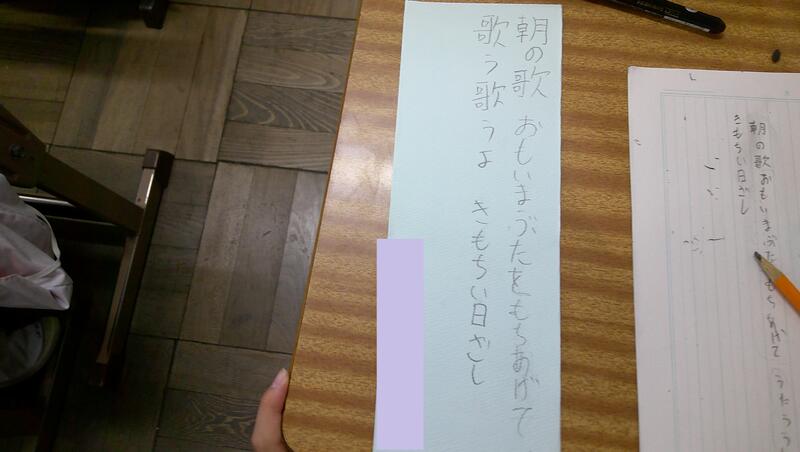 朝の歌 おもいまぶたをもちあげて
歌う歌うよ きもちい日ざし
朝の歌おもいまぶた もちあげて うたうう
きもちい日ざし